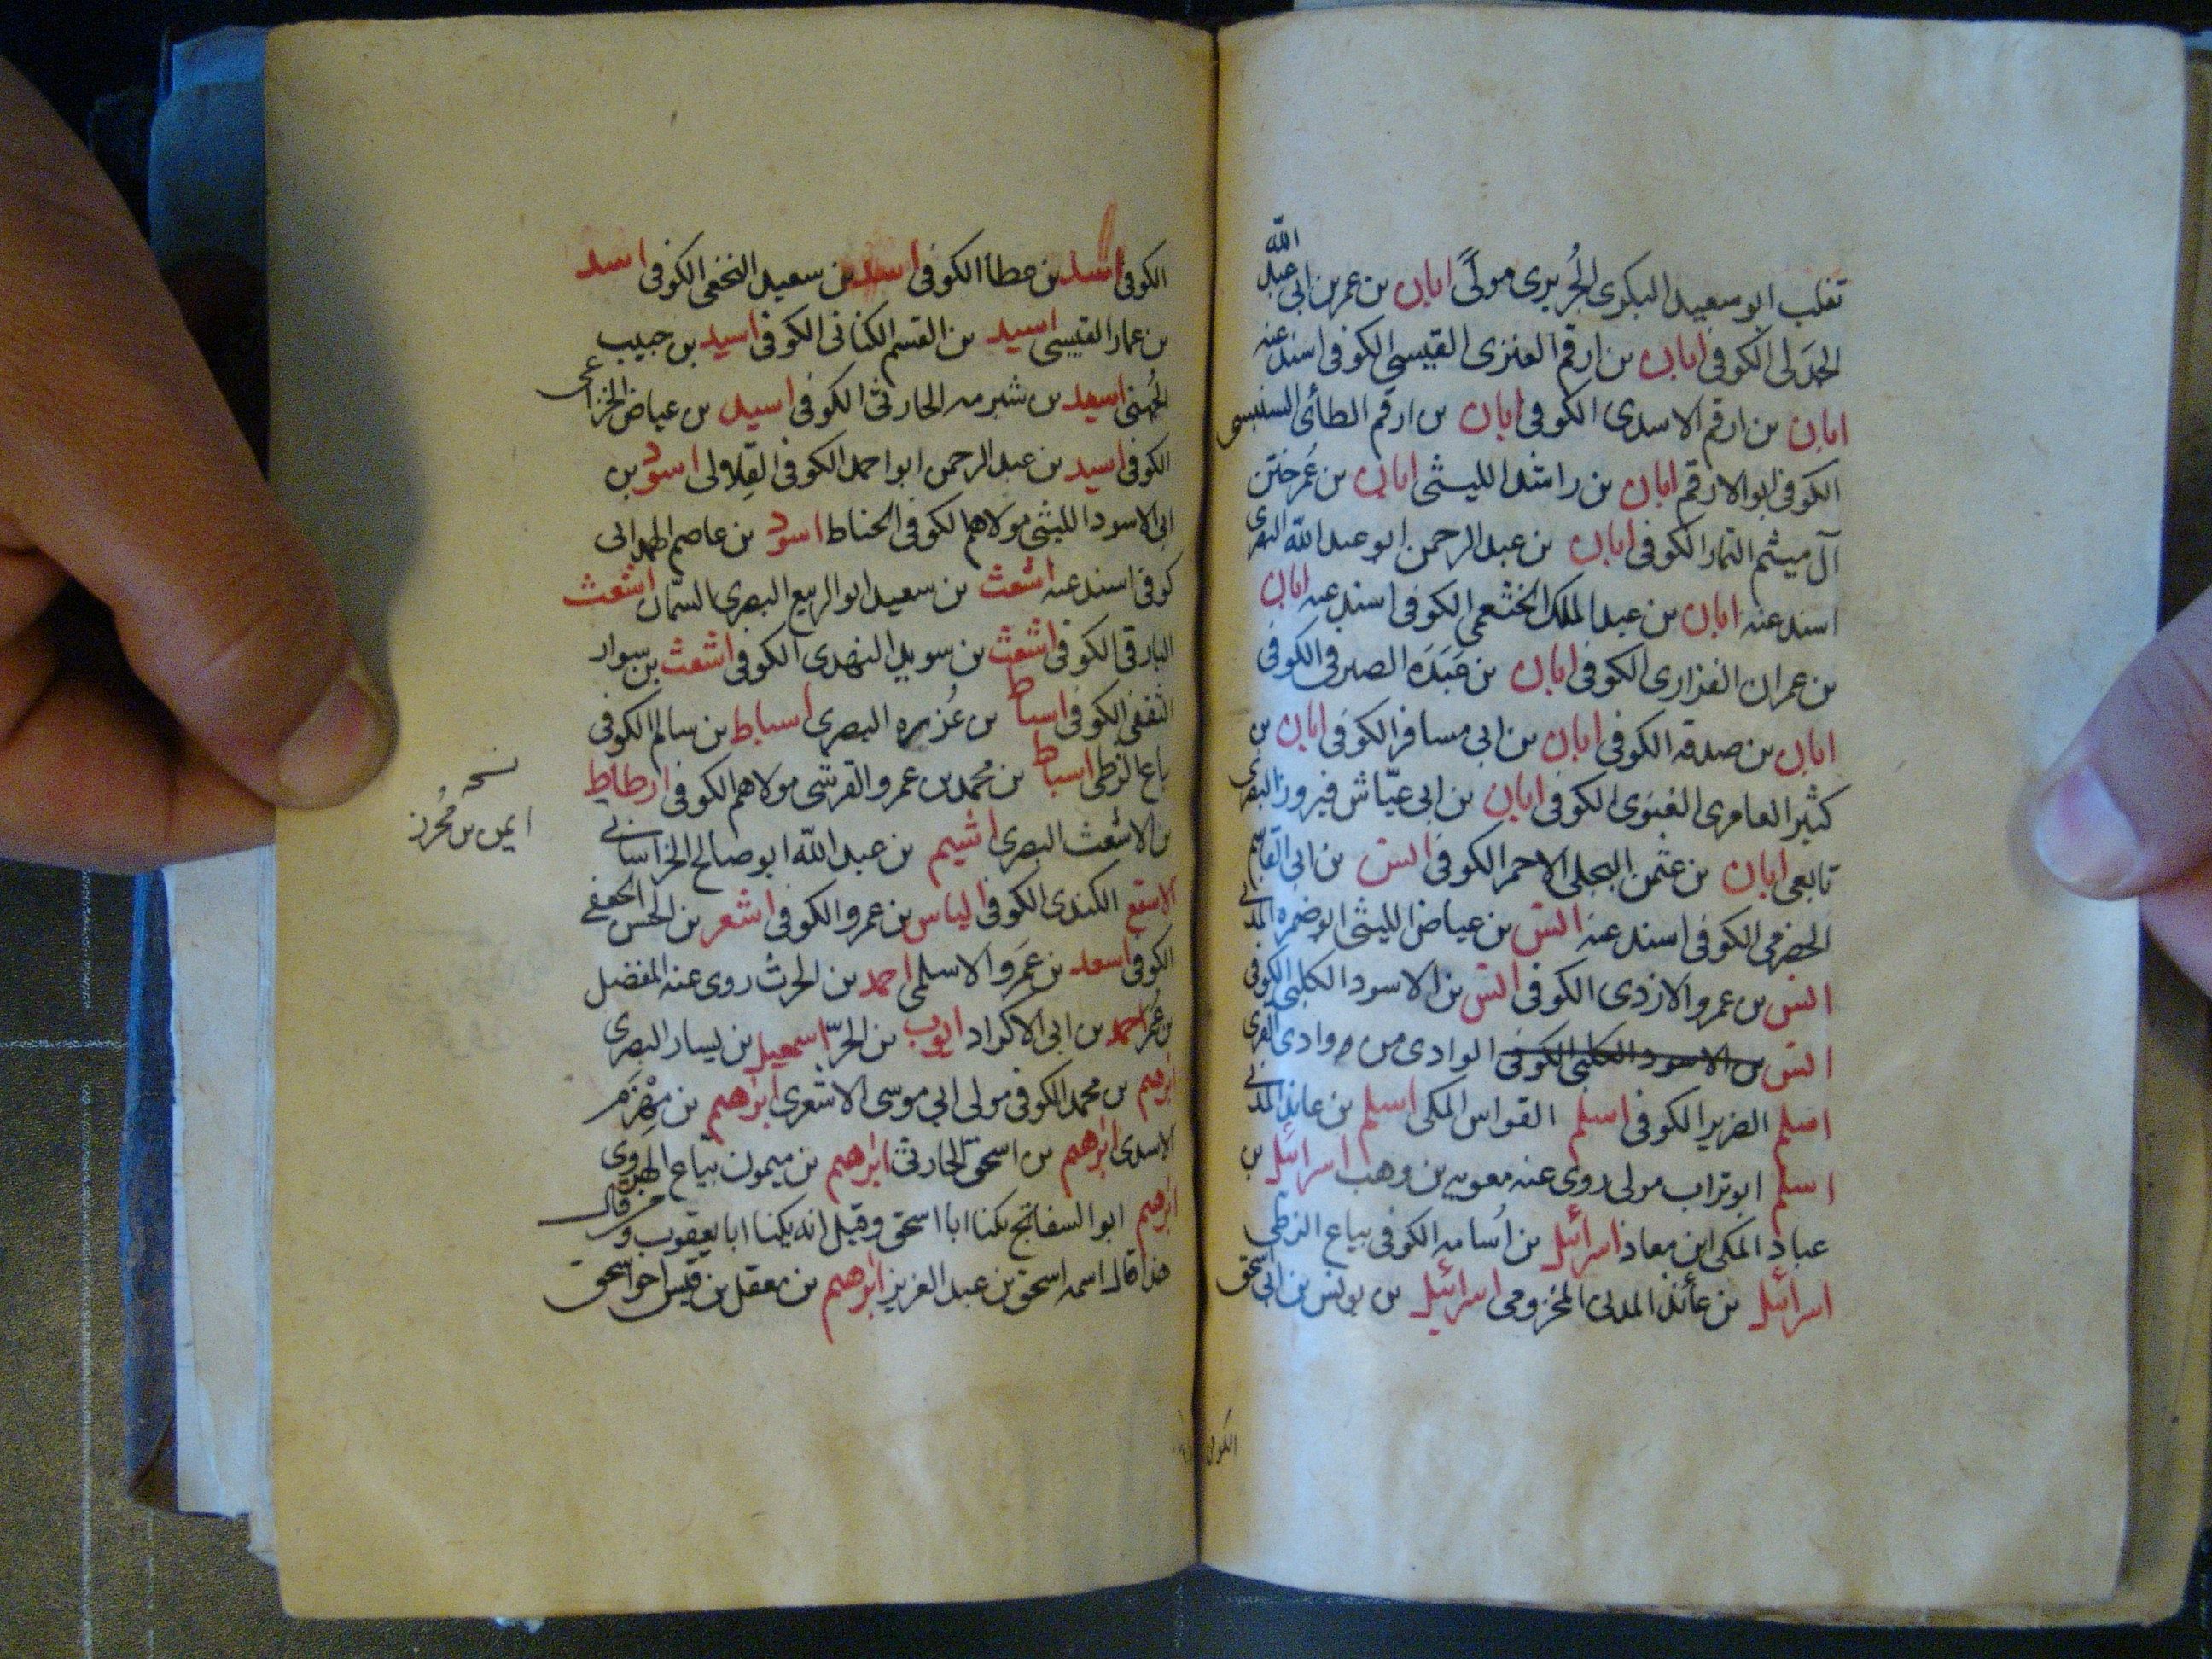 تغلب ابو سعيد البكرى الجُريرى مولًى ابان بن عمر بن ابى عبد الله
الجدَلى الكوفى ابان بن ارقم العنزى القيسى الكوفى اسند عنه
ابان بن ارقم الاسدى الكوفى ابان بن ارقم الطائى السنبسى
الكوفى ابو الارقم ابان بن راشد الليثى ابان بن عُمر ختن
آل ميثم التمار الكوفى ابان بن عبد الرحمن ابو عبد الله البصرى
اسند عنه ابان بن عبد الملك الخثعمى الكوفى اسند عنه ابان
بن عمران الفزارى الكوفى ابان بن عَبَدَه الصيرفى الكوفى
ابان بن صدقه الكوفى ابان بن ابى مسافر الكوفى ابان بن
كثير العامرى الغنوى الكوفى ابان بن ابى عيّاش فيروز البصرى
تابعى ابان بن عثمن البجلى الاحمر الكوفى انس بن ابى القاسم
الحضرمى الكوفى اسند عنه انس بن عياض الليثى ابو ضمره المدنى
انس بن عمرو الازدى الكوفى انس بن الاسود الكلبى الكوفى
انس بن الاسود الكلبى الكوفى الوادى من وادى القرى
اسلم الضرير الكوفى اسلم القواس المكى اسلم بن عائذ المدنى
اسلم ابو تراب مولى روى عنه معويه بن وهب اسرائيل بن
عباد المكى ابن معاذ اسرائيل بن اُسامه الكوفى بياع الزطى
اسرائيل بن عائذ المدنى المخزومى اسرائيل بن يونس بن ابى اسحق
الكوفى
الكوفى اسد بن عطاء الكوفى اسد بن سعيد النخعى الكوفى اسد
بن عمار القيسى اسيد بن القسم الكنانى الكوفى اسيد بن حبيب
الجُهنى اسيد بن شبرمه الحارثى الكوفى اسيد بن عياض الخزاعى
الكوفى اسيد بن عبد الرحمن ابو احمد الكوفى القِلاولى اسود بن
ابى الاسود الليثى مولاهم الكوفى الحناط اسود بن عاصم الهمدانى
كوفى اسند عنه اشعث بن سعيد ابو الربيع البصرى السمّان اشعث
البارقى الكوفى اشعث بن سويد النهدى الكوفى اشعث بن سوار
الثقفى الكوفى اسباط بن عُزيره البصرى اسباط بن سالم الكوفى
بياع الزطى اسباط بن محمد بن عمرو القرشى مولاهم الكوفى ارطاط
بن الاشعث البصرى اشيم بن عبد الله ابو صالح الخراسانى
الاسقع الكندى الكوفى الياس بن عمرو الكوفى اشعر بن الحسن الجعفى
الكوفى اسعد بن عَمرو الاسلمى احمد بن الحرث روى عنه المفضل
بن عُمر احمد بن ابى الاكراد ايوب بن الحرّ اسمعيل بن يسار البصرى
ابرهيم بن محمد الكوفى مولى ابى موسى الاشعرى ابرهيم بن مِهْزَم
الاسدى ابرهيم بن اسحق الحارثى ابرهيم بن ميمون بياع الهروى
ابرهيم ابو السفاتج يكنا ابا اسحق وقيل انه يكنا ابا يعقوب ومن قال
هذا قال اسمه اسحق بن عبد العزيز ابرهيم بن معقل بن قيس اخو اسحق
نسخه
ايمن بن مُحُرز